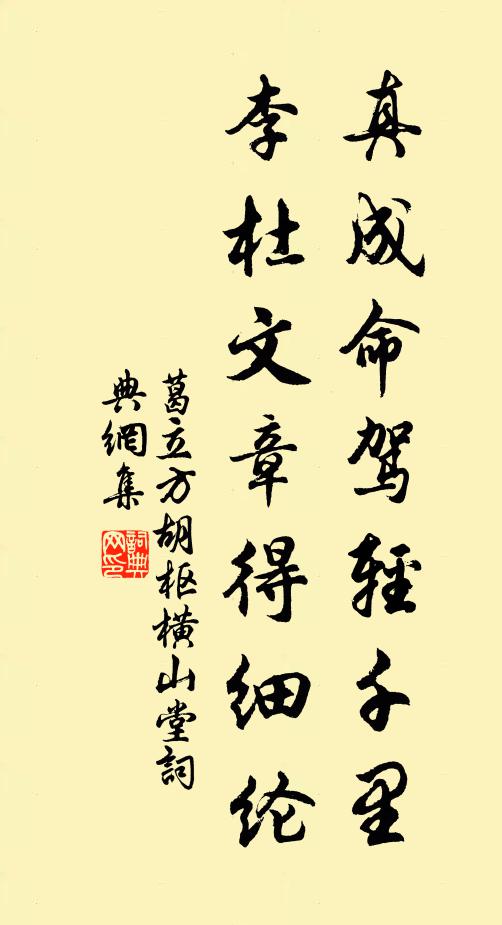 真成命驾輕千里
李杜文章得细纶
葛立方胡枢橫山堂詞
典網集
詞典网印